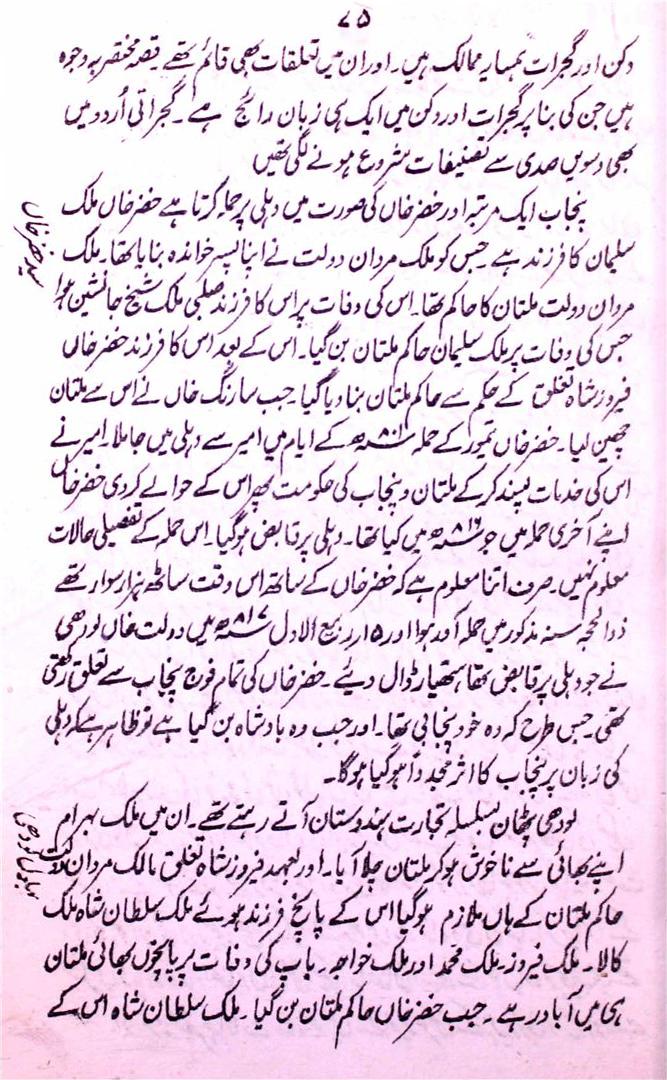 ۷۵
دکن اور گجرات ہمسایہ ممالک ہیں۔ اور ان میں تعلقات بھی قائم تھے۔ قصہ مختصر یہ وجوہ
ہیں جن کی بنا پر گجرات اور دکن میں ایک ہی زبان رائج ہے۔ گجراتی اُردو میں
بھی دسویں صدی سے تصنیفات شروع ہونے لگی تھیں
پنجاب ایک مرتبہ اور خضر خاں کی صورت میں دہلی پر حملہ کرتا ہے خضر خاں ملک
سید خضر خاں
سلیمان کا فرزند ہے۔ جس کو ملک مردان دولت نے اپنا پسر خواندہ بنایا تھا۔ ملک
مردان دولت ملتان کا حاکم تھا۔ اس کی وفات پر اس کا فرزند صلبی ملک شیخ جانشین ہوا
جس کی وفات پر ملک سلیمان حاکم ملتان بن گیا۔ اس کے بعد اس کا فرزند خضر خاں
فیروز شاہ تغلق کے حکم سے حاکم ملتان بنا دیا گیا۔ جب سارنگ خاں نے اس سے ملتان
چھین لیا۔ خضر خاں تیمور کے حملہ ۸۰۱ھ کے ایام میں امیر سے دہلی میں جا ملا۔ امیر نے
اس کی خدمات پسند کر کے ملتان و پنجاب کی حکومت پھر اس کے حوالے کر دی خضر خاں
اپنے آخری حملہ میں جو ۸۱۶ھ میں کیا تھا۔ دہلی پر قابض ہو گیا۔ اس حملہ کے تفصیلی حالات
معلوم نہیں۔ صرف اتنا معلوم ہے کہ خضر خاں کے ساتھ اس وقت ساٹھ ہزار سوار تھے
ذوالحجہ سنہ مذکور میں حملہ آور ہوا اور ۱۵ ربیع الاول ۸۱۷ھ میں دولت خاں لودھی
نے جو دہلی پر قابض تھا ہتھیار ڈال دیئے۔ خضر خاں کی تمام فوج پنجاب سے تعلق رکھتی
تھی۔ جس طرح کہ وہ خود پنجابی تھا۔ اور جب وہ بادشاہ بن گیا ہے تو ظاہر ہے کہ دہلی
کی زبان پر پنجاب کا اثر مجدداً ہو گیا ہوگا۔
لودھی پٹھان بسلسلہ تجارت ہندوستان آتے رہتے تھے۔ ان میں ملک بہرام
بہلول لودھی
اپنے بھائی سے ناخوش ہو کر ملتان چلا آیا۔ اور بعہد فیروز شاہ تغلق مالک مردان دولت
حاکم ملتان کے ہاں ملازم ہو گیا اس کے پانچ فرزند ہوئے ملک سلطان شاہ ملک
کالا۔ ملک فیروز۔ ملک محمد اور ملک خواجہ۔ باپ کی وفات پر پانچوں بھائی ملتان
ہی میں آباد رہے۔ جب خضر خاں حاکم ملتان بن گیا۔ ملک سلطان شاہ اس کے